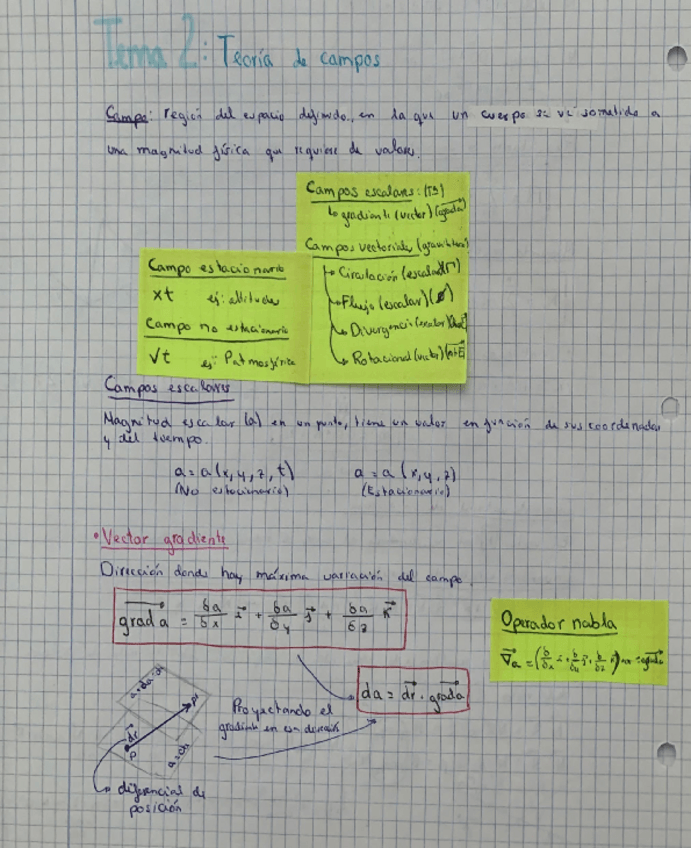 Tema 2: Teoría de campos
Campo: región del espacio definido, en la que un cuerpo se ve sometido a
una magnitud física que requiere de valores.
Campos escalares: (Tª)
↳ gradiente (vector) (grad a)
Campos vectoriales (gravitatorio)
Circulación (escalar) (Γ)
Flujo (escalar) (Ø)
Divergencia (escalar)
Rotacional (vector)
Campo estacionario
xt ej: altitudes
Campo no estacionario
√t ej: Patmosférica
Campos escalares
Magnitud escalar (a) en un punto, tiene un valor en función de sus coordenadas
y del tiempo.
a = a (x, y, z, t) a = a (x, y, z)
(No estacionario) (Estacionario)
• Vector gradiente
Dirección donde hay máxima variación del campo.
grad a = δa/δx i + δa/δy j + δa/δz k
Operador nabla
∇a = (δ/δx i + δ/δy j + δ/δz k) a = grad a
da = dr · grad a
Proyectando el
gradiente en una dirección
a+da=cte
dr
P
a=cte
↳ diferencial de
posición